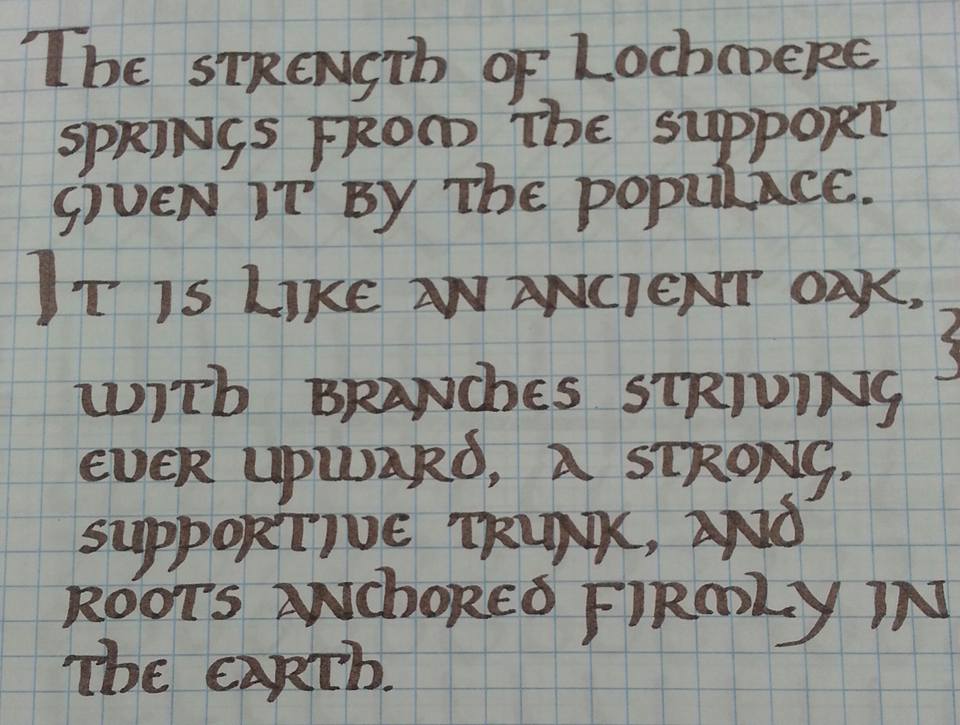 The strength of Lochmere
springs from the support
given it by the populace.
It is like an ancient oak,
with branches striving
ever upward, a strong,
supportive trunk, and
roots anchored firmly in
the earth.